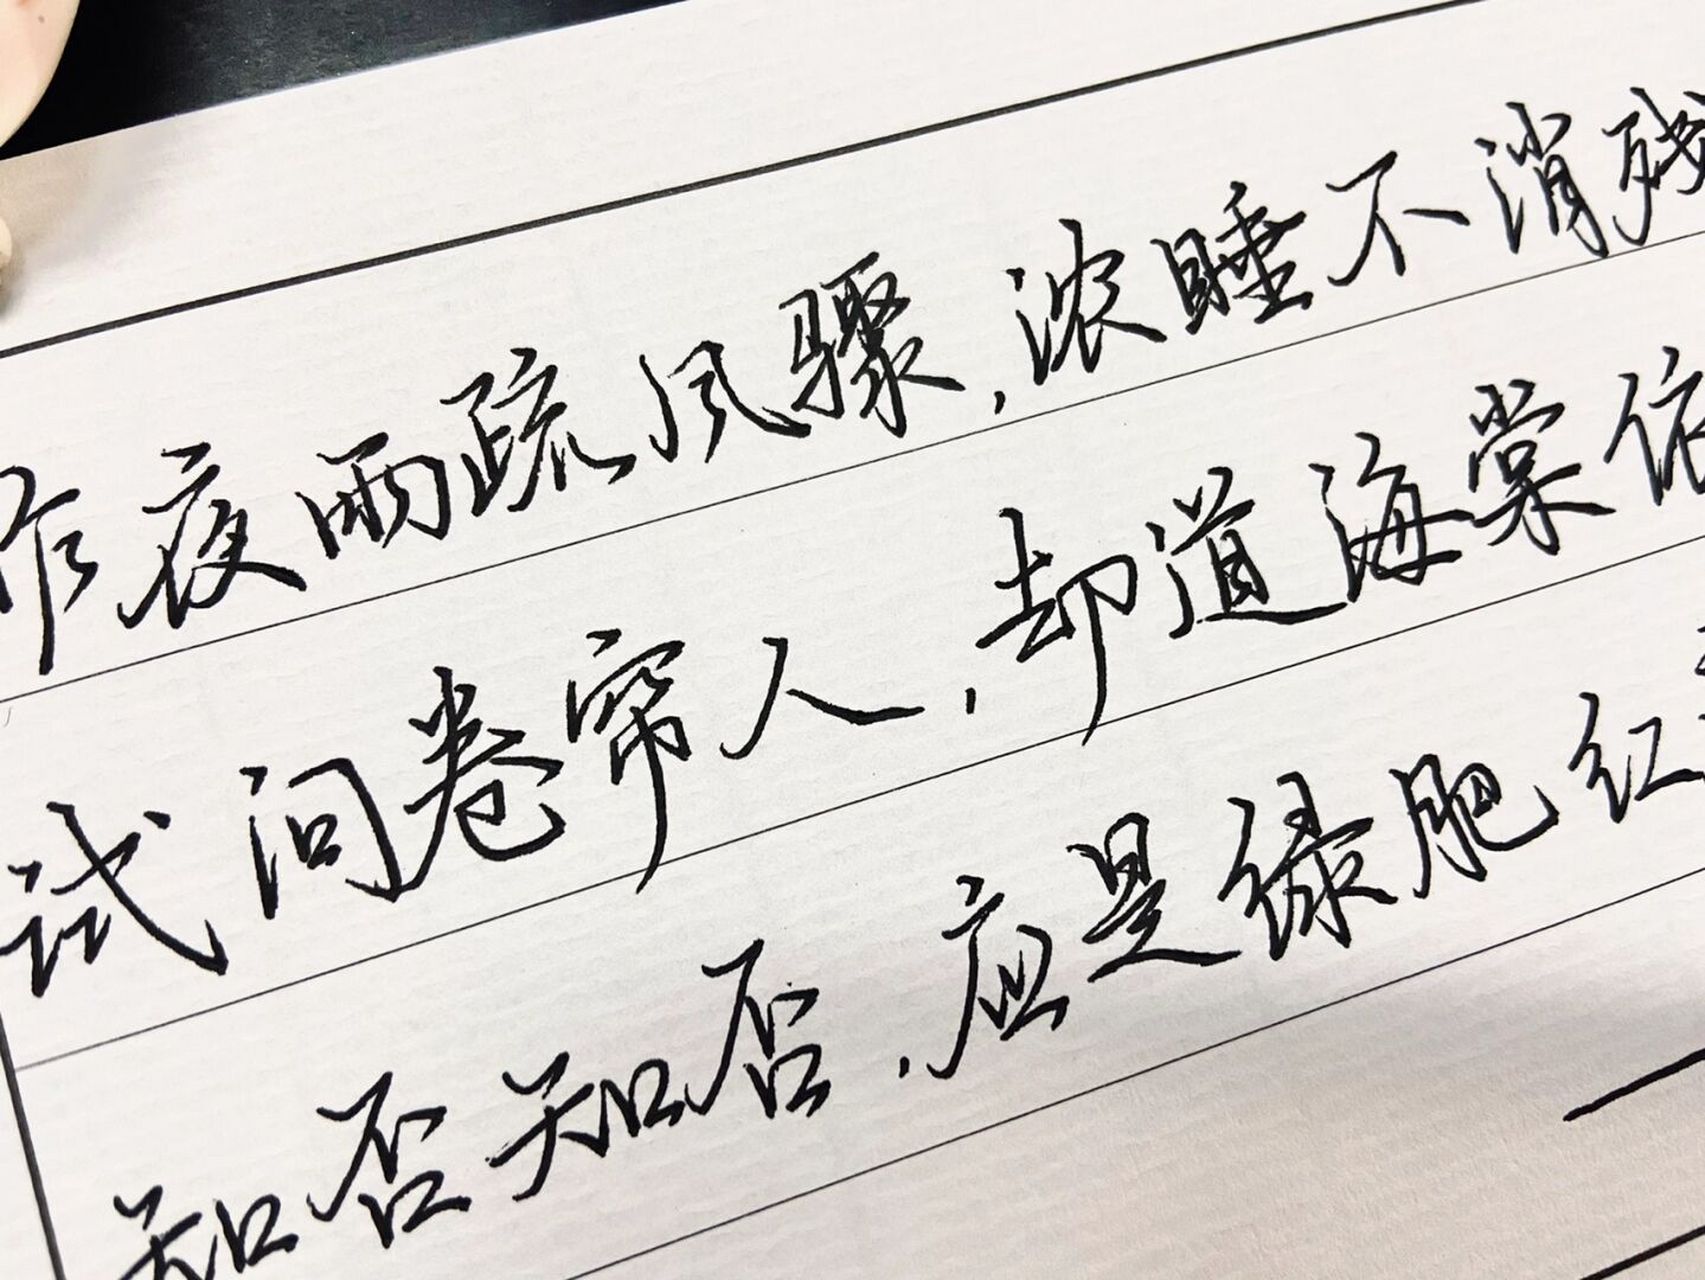 昨夜雨疏风骤，浓睡不消残
试问卷帘人，却道海棠依
知否知否，应是绿肥红